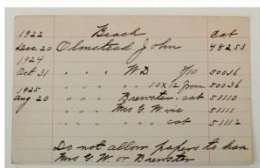 1922 Beach Cat
Dec 20 Olmstead John 48253
1924
Oct 31 " " " W D 8/10 50036
1925 " " " 10 x 12 from 50036
Aug 20 " " " Brewster - cat 51110
" " " Mrs G W 51111
" " " cat 51112
Do not allow papers to
Mrs G W or Brewster